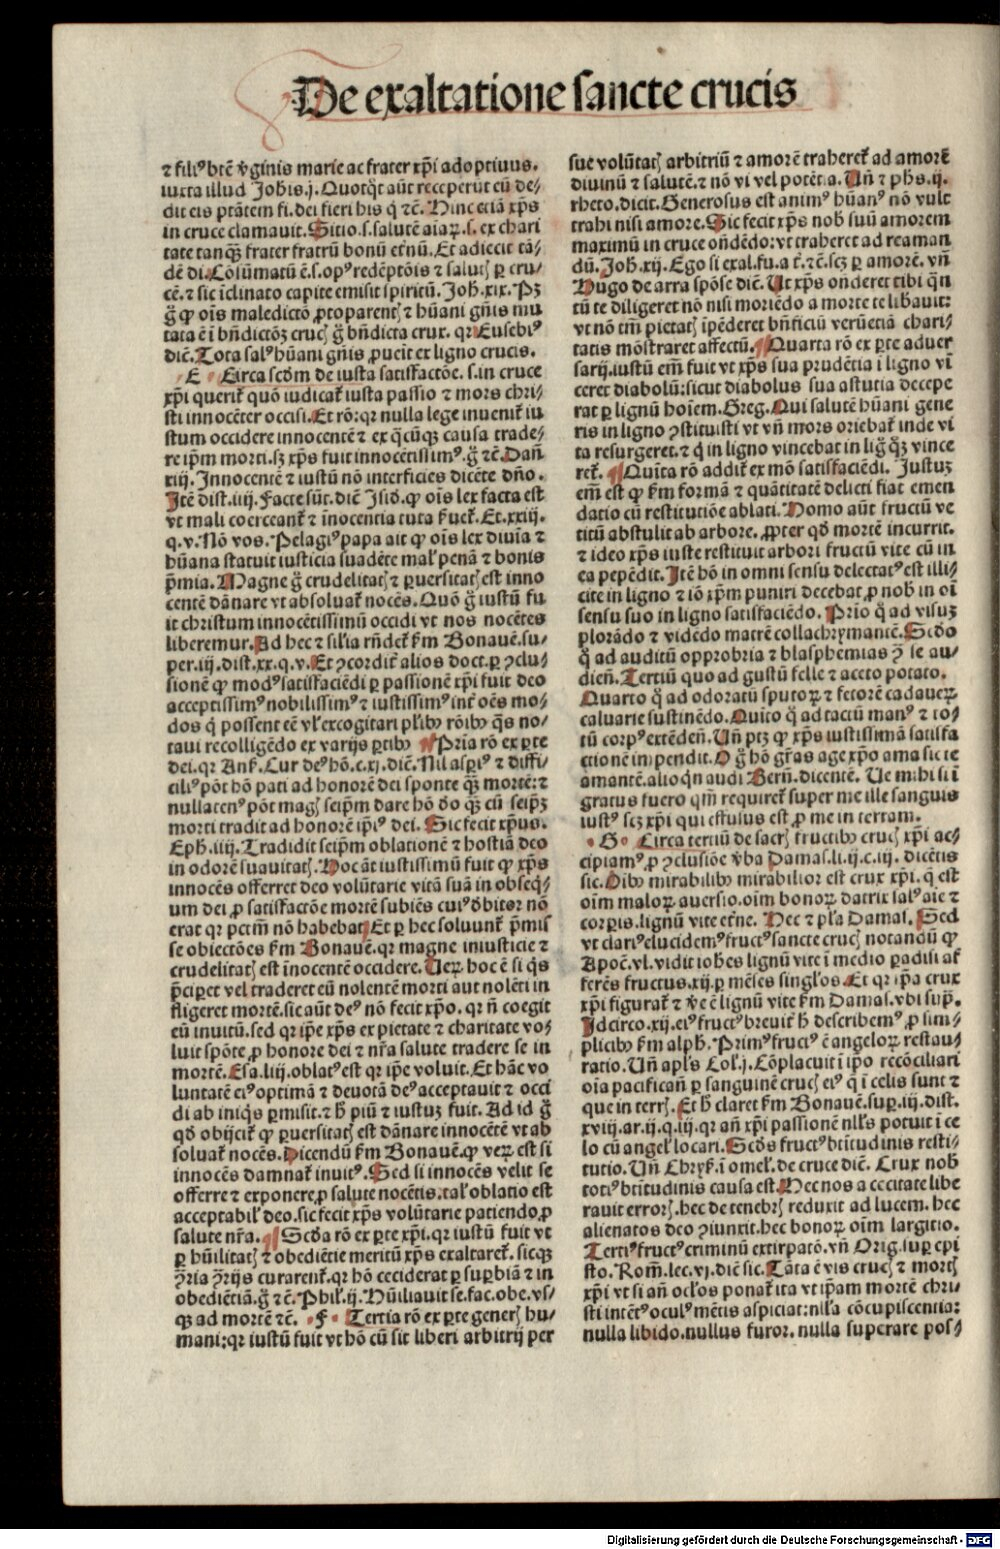 De exaltatione sancte crucis
⁊ filiꝰ btẽ v̾ginis marie ac frater xp̃i adoptiuus.
iuxta illud Johis.j. Quotq̃t aũt receperũt eũ de⸗
dit eis ptãtem fi. dei fieri his q̃ ⁊c̃. Hinc etiã xp̃s
in cruce clamauit. Sitio.s.salutẽ aĩaꝝ.s. ex chari
tate tanq̃ꝫ frater fratrũ bonũ et̾nũ. Et adiecit tã⸗
dẽ di. Cõsũmatũ ẽ.s.opꝰ redẽptõis ⁊ salutꝭ ꝑ cru⸗
cẽ. ⁊ sic ĩclinato capite emisit spiritũ. Joh.xix. Pꝫ
g̃ ꝙ oĩs maledictõ ꝓtoparentꝭ ⁊ hũani gñis mu
tata ẽ ĩ bñdictõꝫ crucꝭ g̃ bñdicta crux. qꝛ Eusebiꝰ
diẽ. Tota salꝰ hũani gñis ꝓuẽit ex ligno crucis.
E Circa scd̃m de iusta satisfactõe. s. in cruce
xp̃i querit᷑ quõ iudicat᷑ iusta passio ⁊ mors chri⸗
sti innocẽter occisi. Et rõ: qꝛ nulla lege inuenit᷑ iu
stum occidere innocentẽ ⁊ ex q̃cũqꝫ causa trade⸗
re ip̃m morti. sꝫ xp̃s fuit innocẽtissimꝰ. g̃ ⁊c̃. Dañ
xiij. Innocentẽ ⁊ iustũ nõ interficies dicẽte dño.
Itẽ dist.iiij. Facte sũt. diẽ Jsid. ꝙ oĩs lex facta est
vt mali coerceant᷑ ⁊ ĩnocentia tuta ẜuet᷑. Et.xxiij.
q.v. Nõ vos. Pelagiꝰ papa ait ꝙ oĩs lex diuĩa ⁊
hũana statuit iusticia suadẽte malꝭ penã ⁊ bonis
p̃mia. Magne g̃ crudelitatꝭ ⁊ ꝑuersitatꝭ est inno
centẽ dãnare vt absoluat᷑ nocẽs. Quõ g̃ iustũ fu
it christum innocẽtissimũ occidi vt nos nocẽtes
liberemur. Ad hec ⁊ sil̃ia rñdet᷑ ẜm Bonauẽ. su⸗
per.iij.dist.xx.q.v. Et ꝯcordit᷑ alios doct. ꝑ ꝯclu⸗
sionẽ ꝙ modꝰ satisfaciẽdi ꝑ passionẽ xp̃i fuit deo
acceptissimꝰ nobilissimꝰ ⁊ iustissimꝰ int᷑ oẽs mo⸗
dos q̃ possent eẽ vl̾ excogitari pl̃ibꝰ rõibꝰ q̃s no⸗
taui recolligẽdo ex varijs ꝑtibꝰ ¶ Pria rõ ex ꝑte
dei. qꝛ Ans̾. Cur deꝰ hõ.c.xj. diẽ. Nil asꝑiꝰ ⁊ diffi⸗
ciliꝰ põt hõ pati ad honorẽ dei sponte q̃ꝫ mortẽ: ⁊
nullatenꝰ põt magꝭ seip̃m dare hõ deo q̃ꝫ cũ seip̃ꝫ
morti tradit ad honorẽ ip̃iꝰ dei. Sic fecit xp̃us.
Eph.iiij. Tradidit seip̃m oblationẽ ⁊ hostiã deo
in odorẽ suauitatꝭ. Hoc aũt iustissimũ fuit ꝙ xp̃s
innocẽs offerret deo volũtarie vitã suã in obseq̃⸗
um dei ꝓ satisfactõe mortẽ subiẽs cuiꝰ d̾bitor nõ
erat qꝛ pctm̃ nõ habebat. Et ꝑ hec soluunt᷑ p̃mis
se obiectões ẜm Bonauẽ. qꝛ magne iniusticie ⁊
crudelitatꝭ est ĩnocentẽ occidere. Veꝝ hoc ẽ si q̃s
p̃ciꝑet vel traderet eũ nolentẽ morti aut nolẽti in
fligeret mortẽ. sic aũt deꝰ nõ fecit xp̃o. qꝛ ñ coegit
eũ inuitũ. sed qꝛ ip̃e xp̃s ex pietate ⁊ charitate vo⸗
luit spõte ꝓ honore dei ⁊ nr̃a salute tradere se in
mortẽ. Esa.liij. oblatꝰ est qꝛ ip̃e voluit. Et hãc vo
luntatẽ eiꝰ optimã ⁊ deuotã deꝰ acceptauit ⁊ occi
di ab iniq̃s ꝑmisit. ⁊ h̾ piũ ⁊ iustuꝫ fuit. Ad id g̃
qd̾ obijcit᷑ ꝙ ꝑuersitatꝭ est dãnare innocẽtẽ vt ab
soluat᷑ nocẽs. Dicendũ ẜm Bonauẽ. ꝙ veꝝ est si
innocẽs damnat᷑ inuitꝰ. Sed si innocẽs velit se
offerre ⁊ exponere ꝓ salute nocẽtis. talꝭ oblatio est
acceptabilꝭ deo. sic fecit xp̃s volũtarie patiendo ꝓ
salute nr̃a. ¶ Scd̃a rõ ex ꝑte xp̃i. qꝛ iustũ fuit vt
ꝑ hũilitatꝭ ⁊ obediẽtie meritũ xp̃s exaltaret᷑. sicqꝫ
ꝯ̃ria ꝯ̃rijs curarent᷑. qꝛ hõ ceciderat ꝑ suꝑbiã ⁊ in
obediẽtiã. g̃ ⁊c̃. Phil̾.ij. Hũiliauit se. fac. obe. vs⸗
qꝫ ad mortẽ ⁊c̃. F Tertia rõ ex ꝑte generꝭ hu⸗
mani: qꝛ iustũ fuit vt hõ cũ sit liberi arbitrij per
sue volũtatꝭ arbitriũ ⁊ amorẽ traheret᷑ ad amorẽ
diuinũ ⁊ salutẽ. ⁊ nõ vi vel potẽtia. Vñ ⁊ ph̃s.ij.
rheto. dicit. Generosus est animꝰ hũanꝰ nõ vult
trahi nisi amore. Sic fecit xp̃s nob̾ suũ amorem
maximũ in cruce oñdẽdo: vt traheret ad reaman
dũ. Joh.xij. Ego si exal. fu. a t̾. ⁊c̃. scꝫ ꝑ amorẽ. vñ
Hugo de arra spõse diẽ. Ut xp̃s onderet tibi q̃n
tũ te diligeret nõ nisi moriẽdo a morte te libauit:
vt nõ tm̃ pietatꝭ ĩpẽderet bñficiũ verũetiã chari⸗
tatis mõstraret affectũ. ¶ Quarta rõ ex ꝑte aduer
sarij. iustũ em̃ fuit vt xp̃s sua prudẽtia ĩ ligno vĩ
ceret diabolũ: sicut diabolus sua astutia decepe
rat ꝑ lignũ hoĩem. Greg. Qui salutẽ hũani gene
ris in ligno ꝯstituisti vt vñ mors oriebat᷑ inde vi
ta resurgeret. ⁊ q̃ in ligno vincebat in lig̃ q̃ꝫ vince
ret᷑. ¶ Quĩta rõ addit᷑ ex mõ satisfaciẽdi. Justuꝫ
em̃ est ꝙ ẜm formã ⁊ quãtitatẽ delicti fiat emen
datio cũ restitutiõe ablati. Homo aũt fructũ ve
titũ abstulit ab arbore. ꝓpter qd̾ mortẽ incurrit.
⁊ ideo xp̃s iuste restituit arbori fructũ vite cũ in
ea pepẽdit. Itẽ hõ in omni sensu delectatꝰ est illi⸗
cite in ligno ⁊ iõ xp̃m puniri decebat ꝓ nob̾ in oĩ
sensu suo in ligno satisfaciẽdo. Prĩo q̃ ad visuꝫ
plorãdo ⁊ vidẽdo matrẽ collachrymantẽ. Scd̾o
q̃ ad auditũ opprobria ⁊ blasphemias ꝯ̃ se au⸗
dieñ. Tertiũ quo ad gustũ felle ⁊ aceto potato.
Quarto q̃ ad odoratũ sputoꝝ ⁊ fetorẽ cadaueꝝ
caluarie sustinẽdo. Quĩto q̃ ad tactũ manꝰ ⁊ to⸗
tũ corpꝰ extẽdeñ. Vñ ptꝫ ꝙ xp̃s iustissimã satisfa
ctionẽ impendit. O g̃ hõ gr̃as age xp̃o ama sic te
amantẽ. alioq̃n audi Berñ. dicentẽ. Ve mihi si ĩ
gratus fuero qm̃ requiret᷑ super me ille sanguis
iustꝰ scꝫ xp̃i qui effusus est ꝓ me in terram.
G Circa tertiũ de sacrꝭ fructibꝰ crucꝭ xp̃i ac⸗
cipiamꝰ ꝓ ꝯclusiõe v̾ba Damas.li.ij.c.iij. dicẽtis
sic. Oĩbꝰ mirabilibꝰ mirabilior est crux xp̃i. q̃ est
oĩm maloꝝ auersio. oĩm bonoꝝ datrix salꝰ aĩe ⁊
corꝑis. lignũ vite et̾ne. Hec ⁊ pl̾a Damas. Sed
vt clariꝰ elucidemꝰ fructꝰ sancte crucꝭ notandũ ꝙ
Apoc̃.vl. vidit iohẽs lignũ vite ĩ medio ꝑadisi af
ferẽs fructus.xij.ꝑ mẽses singl̾os. Et qꝛ ip̃a crux
xp̃i figurat᷑ ⁊ v̾e ẽ lignũ vite ẜm Damas. vbi supͣ.
Idcirco.xij.eiꝰ fructꝰ breuit᷑ h̾ describemꝰ ꝓ sim⸗
plicibꝰ ẜm alph̾. Primꝰ fructꝰ ẽ angeloꝝ restau⸗
ratio. Vñ apl̾s Col̾.j. Cõplacuit ĩ ip̃o recõciliari
oĩa pacificañ ꝑ sanguinẽ crucꝭ eiꝰ q̃ ĩ celis sunt ⁊
que in terrꝭ. Et h̾ claret ẜm Bonauẽ. suꝑ.iij.dist.
xviij.ar.ij.q.iij. qꝛ añ xp̃i passionẽ nll̾s potuit ĩ ce
lo cũ angelꝭ locari. Scd̾s fructꝰ btĩtudinis resti⸗
tutio. Vñ Chryẜ. ĩ omel̾. de cruce diẽ. Crux nob̾
totiꝰ btĩtudinis causa est. Hec nos a cecitate libe
rauit errorꝭ. hec de tenebrꝭ reduxit ad lucem. hec
alienatos deo ꝯiunxit. hec bonoꝝ oĩm largitio.
Tertiꝰ fructꝰ criminũ extirpatõ. vñ Orig. suꝑ epi
sto. Rom̃. lec.vj. diẽ sic. Tãta ẽ vis crucꝭ ⁊ mortꝭ
xp̃i vt si añ ocl̾os ponat᷑ ita vt ip̃am mortẽ chri⸗
sti intẽtꝰ oculꝰ mẽtis aspiciat: nll̾a cõcupiscentia:
nulla libido. nullus furor. nulla superare pos⸗
Digitalisierung gefördert durch die Deutsche Forschungsgemeinschaft - DFG